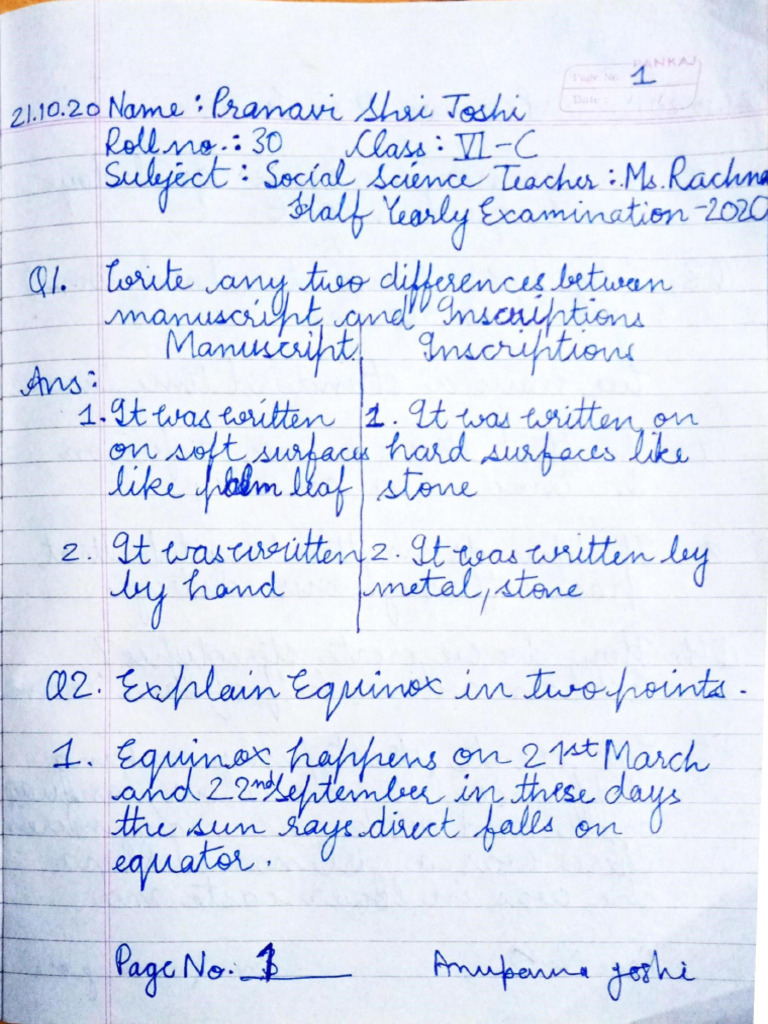 PANKAJ
Page No. 1
Date :
21.10.20 Name : Pranavi Shri Joshi
Roll no. : 30 Class : VI-C
Subject : Social Science Teacher : Ms. Rachna
Half Yearly Examination-2020
Q1. Write any two differences between
manuscript and Inscriptions
Manuscript Inscriptions
Ans:
1. It was written 1. It was written on
on soft surfaces hard surfaces like
like palm leaf stone
2. It was written 2. It was written by
by hand metal, stone
Q2. Explain Equinox in two points.
1. Equinox happens on 21st March
and 22nd September in these days
the sun rays direct falls on
equator.
Page No. 1 Anupama Joshi